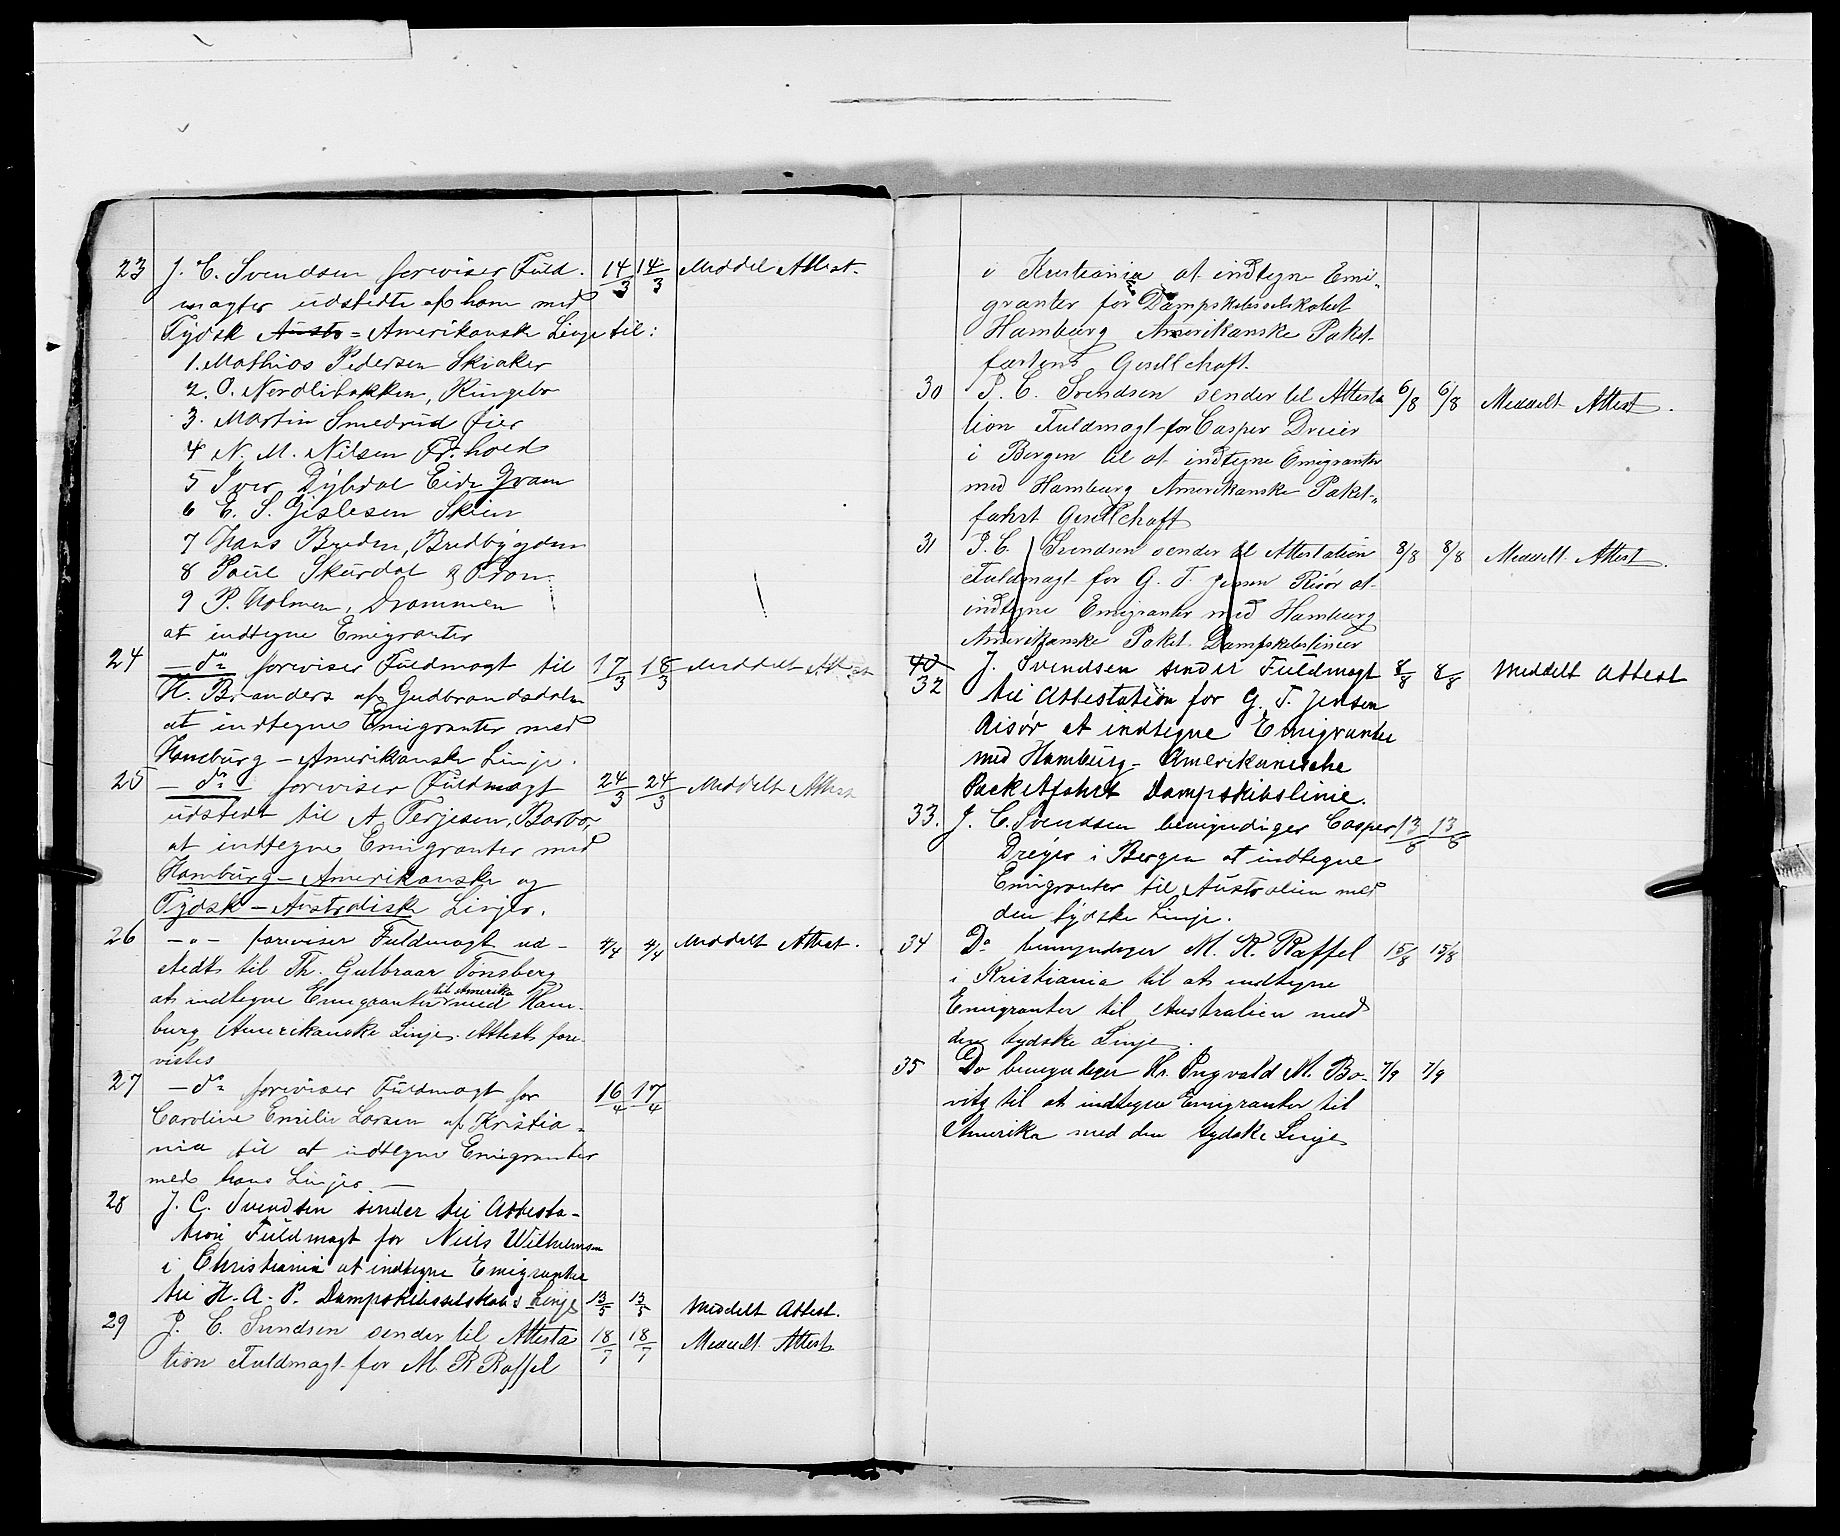 23 J. C. Svendsen foreviser Fuld- 14/3 14/3 Meddel Attest.
magter udstedte af ham med
Tydsk Austr = Amerikansk Linje til:
1. Mathias Pedersen Skiaker
2. O. Nordlibakken, Ringebo
3. Martin Smedrud Øier
4 N. M. Nilsen Fr.hald
5 Iver Dybdal Eide Gram
6 E. S. Gislesen Skien
7 Hans Breden, Bredbygden
8 Paul Skurdal Fron
9 P. Holmen, Drammen
at indtegne Emigranter
24 — do foreviser Fuldmagt til 17/3 18/3 Meddelt Attest
H. Branders af Gudbrandsdalen
at indtegne Emigranter med
Hamburg – Amerikansk Linje.
25 — do foreviser Fuldmagt 24/3 24/3 Meddelt Attest
udstedt til A. Terjesen, Barbo,
at indtegne Emigranter med
Hamburg – Amerikanske og
Tydsk – Australiske Linjer.
26 — " — foreviser Fuldmagt ud- 4/4 4/4 Meddelt Attest.
stedt til Th. Gulbraar Tønsberg
at indtegne Emigranter til Amerika med Ham-
burg Amerikanske Linje. Attest fore-
vistes
27 — do foreviser Fuldmagt for 16/4 17/4
Caroline Emilie Larsen af Kristia-
nia til at indtegne Emigranter
med hans Linjer —
28 J. C. Svendsen sender til Attesta-
tion Fuldmagt for Niels Wilhelmsen
i Christiania at indtegne Emigranter
til H. A. P. Dampskibsselskabs Linje 13/5 13/5 Meddelt Attest.
29 J. C. Svendsen sender til Attesta 18/7 18/7 Meddelt Attest
tion Fuldmagt for M. R Raffel
i Kristiania at indtegne Emi-
granter for Dampskibsselskabet
Hamburg Amerikanske Paket-
fartens Gesellchaft.
30 J. C. Svendsen sender til Attesta 6/8 6/8 Meddelt Attest.
tion Fuldmagt for Casper Dreier
i Bergen til at indtegne Emigranter
med Hamburg Amerikanske Paket-
fahrt Gesellchaft
31 J. C. Svendsen sender til Attestation 8/8 8/8 Meddelt Attest.
Fuldmagt for G. T. Jensen Risør at
indtegne Emigranter med Hamburg
Amerikanske Paket Dampskibslinier
40 J. Svendsen sender Fuldmagt 8/8 8/8 Meddelt Attest
32 til Attestation for G. T. Jensen
Risør at indtegne Emigranter
med Hamburg- Amerikanische
Packetfahrt Dampskibslinie.
33. J. C. Svendsen bemyndiger Casper 13/8 13/8
Dreyer i Bergen at indtegne
Emigranter til Australien med
den tydske Linje.
34 Do bemyndiger M. R. Raffel 15/8 15/8
i Kristiania til at indtegne
Emigranter til Australien med
den tydske Linje.
35 Do bemyndiger Hr. Ingvald M. Bo- 7/9 7/9
vitz til at indtegne Emigranter til
Amerika med den tydske Linje